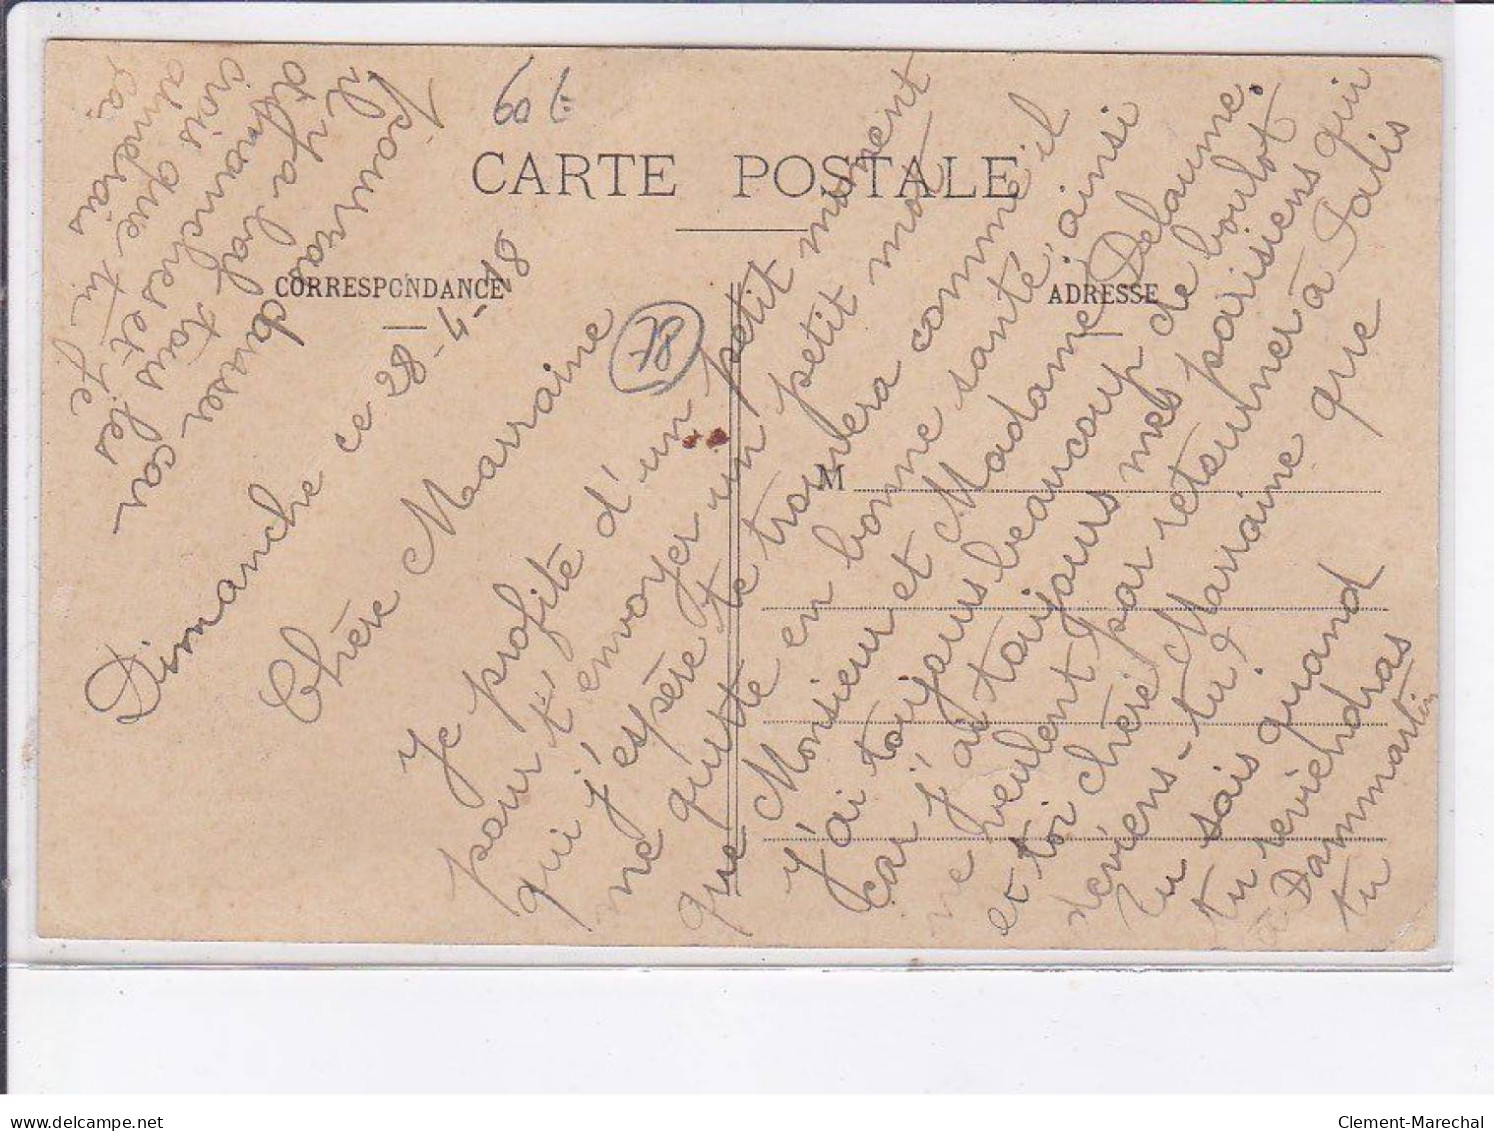 60 t
CARTE POSTALE
CORRESPONDANCE
ADRESSE
M
78
Dimanche ce 28-4-18
Chère Marraine
Je profite d'un petit moment
pour t'envoyer un petit mot
qui j'espère te trouvera comme il
me quitte en bonne santé, ainsi
que Monsieur et Madame Delaume.
J'ai toujours beaucoup de boulot
car j'ai toujours mes parisiens qui
ne veulent par retourner à Paris
et toi chère Marraine que
deviens-tu?
Tu sais quand
tu reviendras
à Dammartin
tu
pourras danser car
il y a bal tous les
dimanches et je
crois que tu
aimerais
ça
delcampe.net
Clement-Marechal